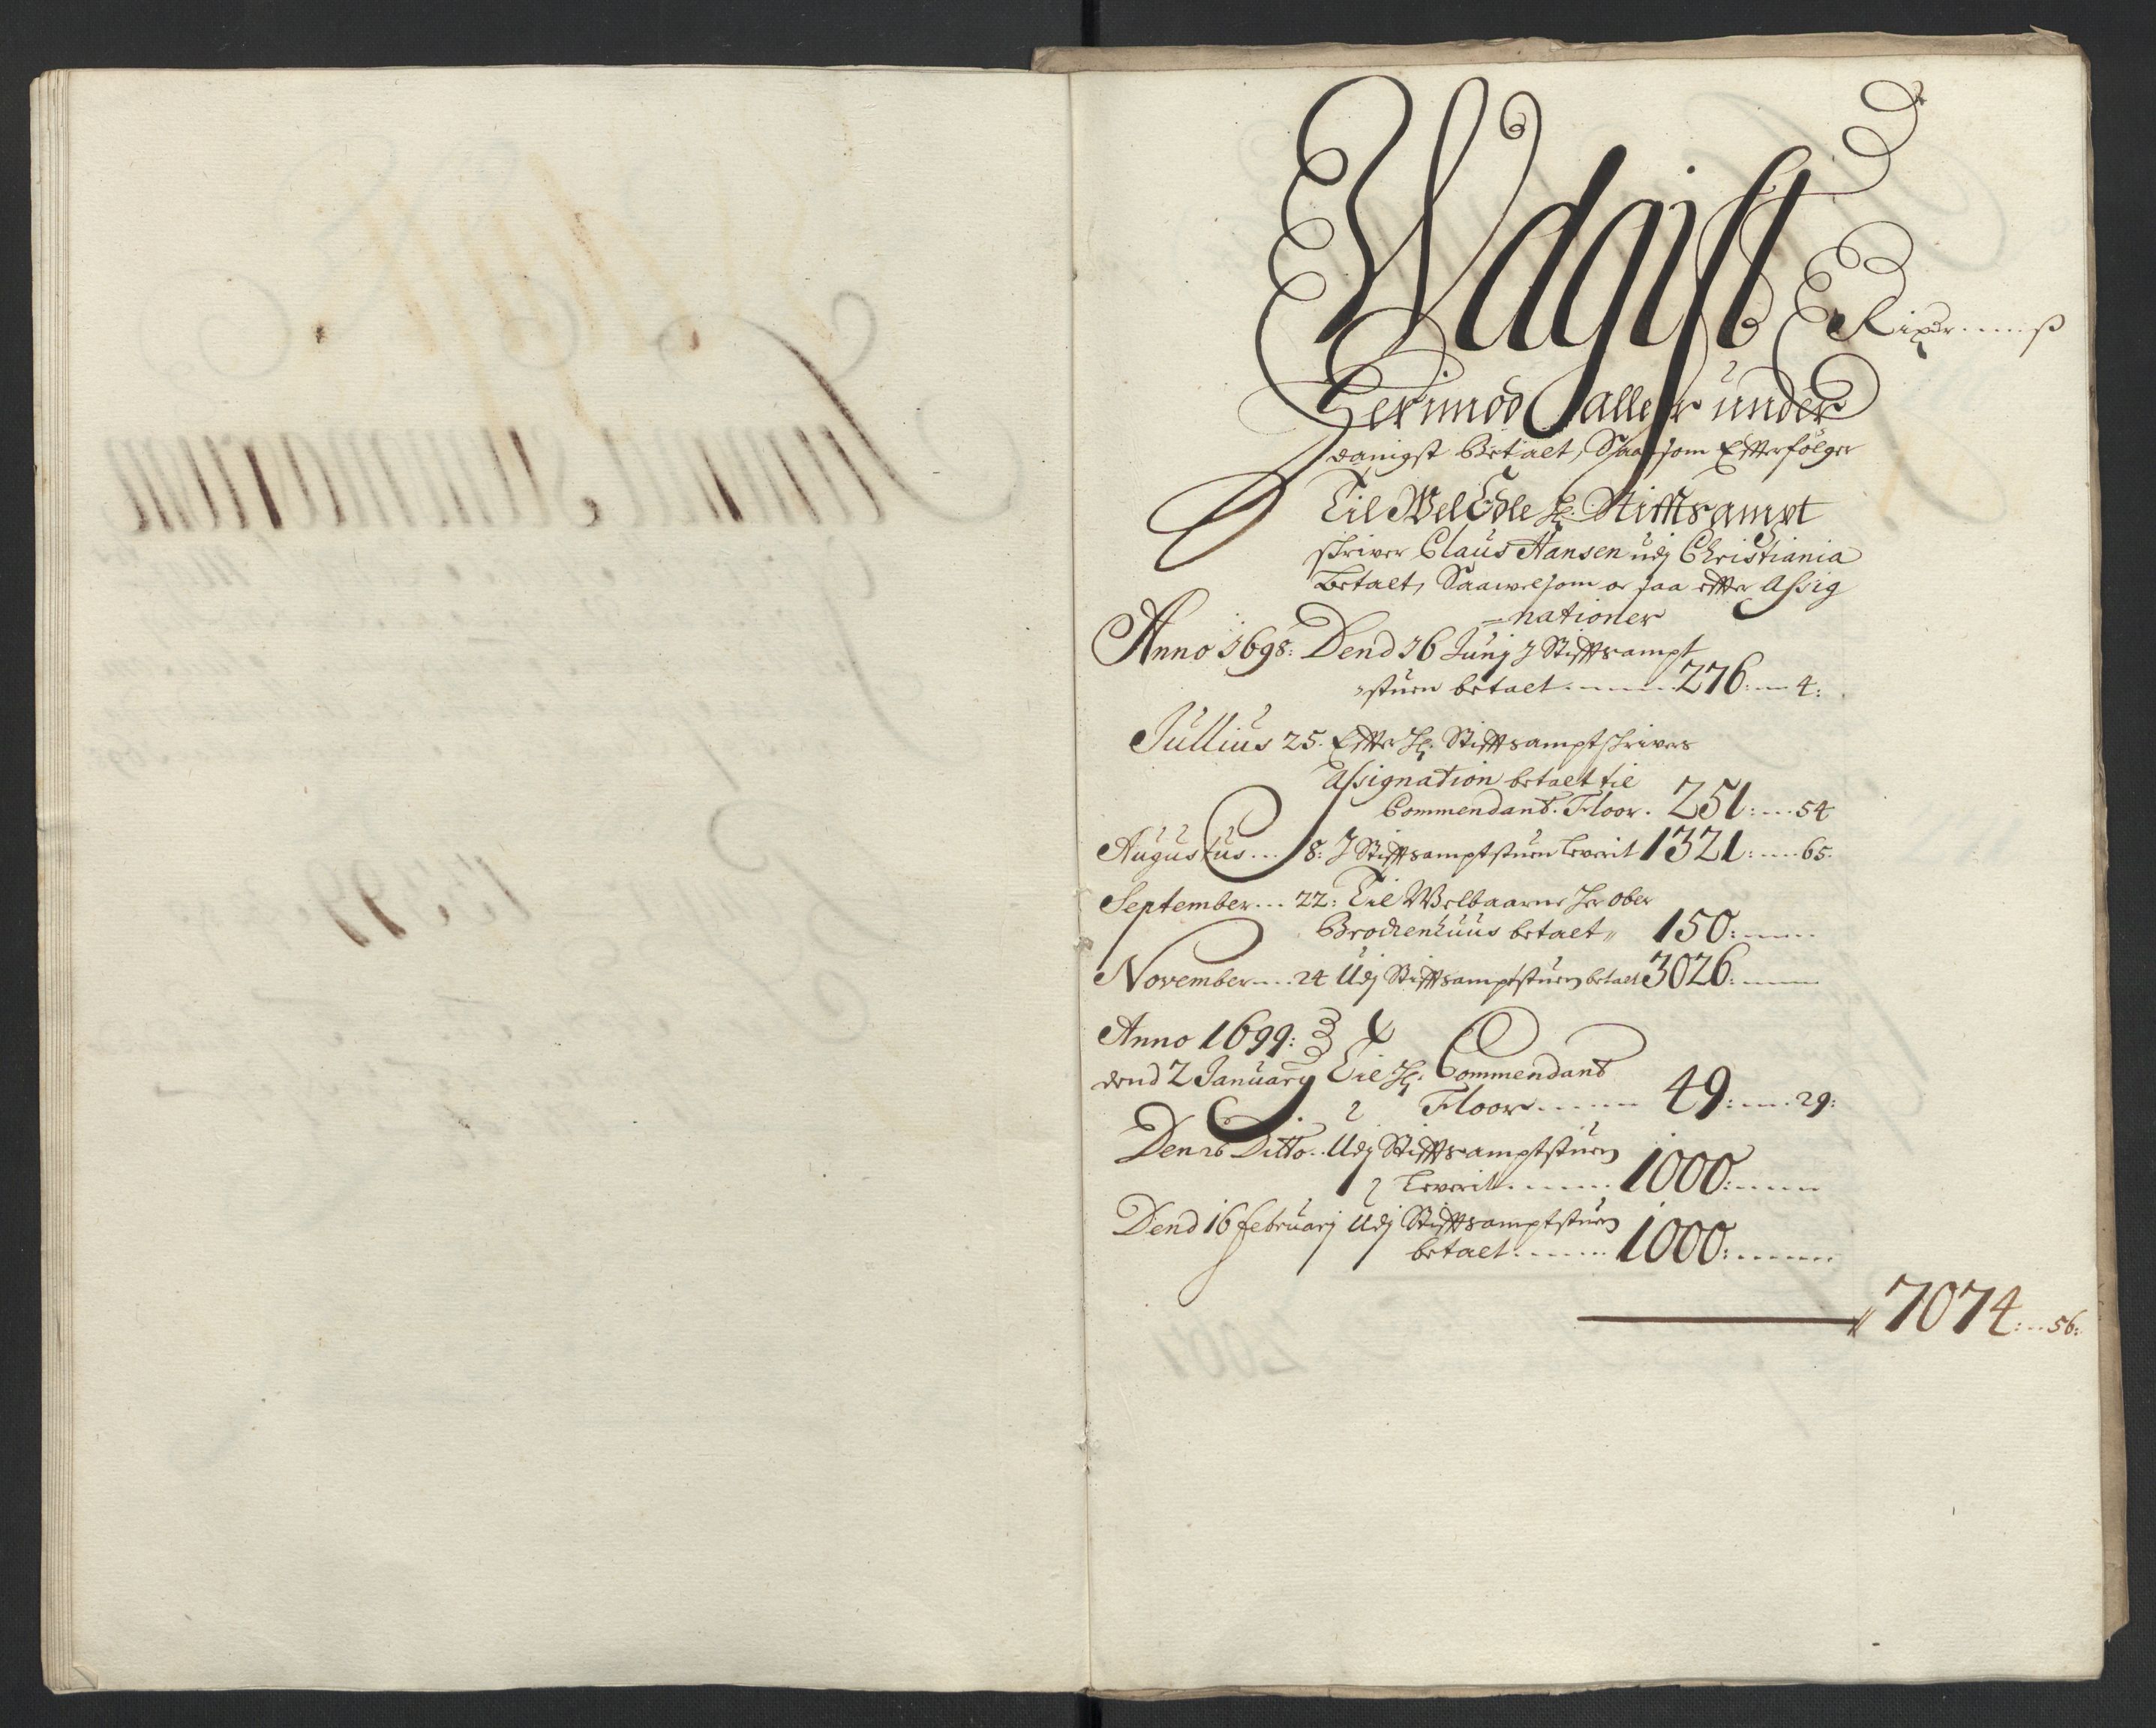 Udgift
Rixdr ..... ß
Herimod aller under
danigst Betalt, Saasom Efterfölger
Til Wel Edle Hr. Stiftsampt
skriver Claus Hansen udj Christiania
Betalt, Saawelsom oc saa efter Assig
=nationer
Anno 1698: Dend 16 Junj J Stiftsampt
stuen betalt ...... 276: ... 4:
Jullius 25. Efter Hr. Stiftsamptskrivers
Assignation betalt til
Commendant. Floor. 251: ... 54
Augustus ... 8: J Stiftsamptstuen leverit 1321: .... 65.
September ... 22: Til Welbaarne Hr ober
Brockenhuus betalt 150: .....
November ... 24 Udj Stiftsamptstuen betalt 3026: .....
Anno 1699:
dend 2 January Til Hr. Commendant
Floor ...... 49: .... 29:
Den 26 Ditto .. Udj Stiftsamptstuen
leverit ...... 1000: .....
Dend 16 februarj Udj Stiftsamptstuen
betalt ...... 1000: ......
7074: ... 56: